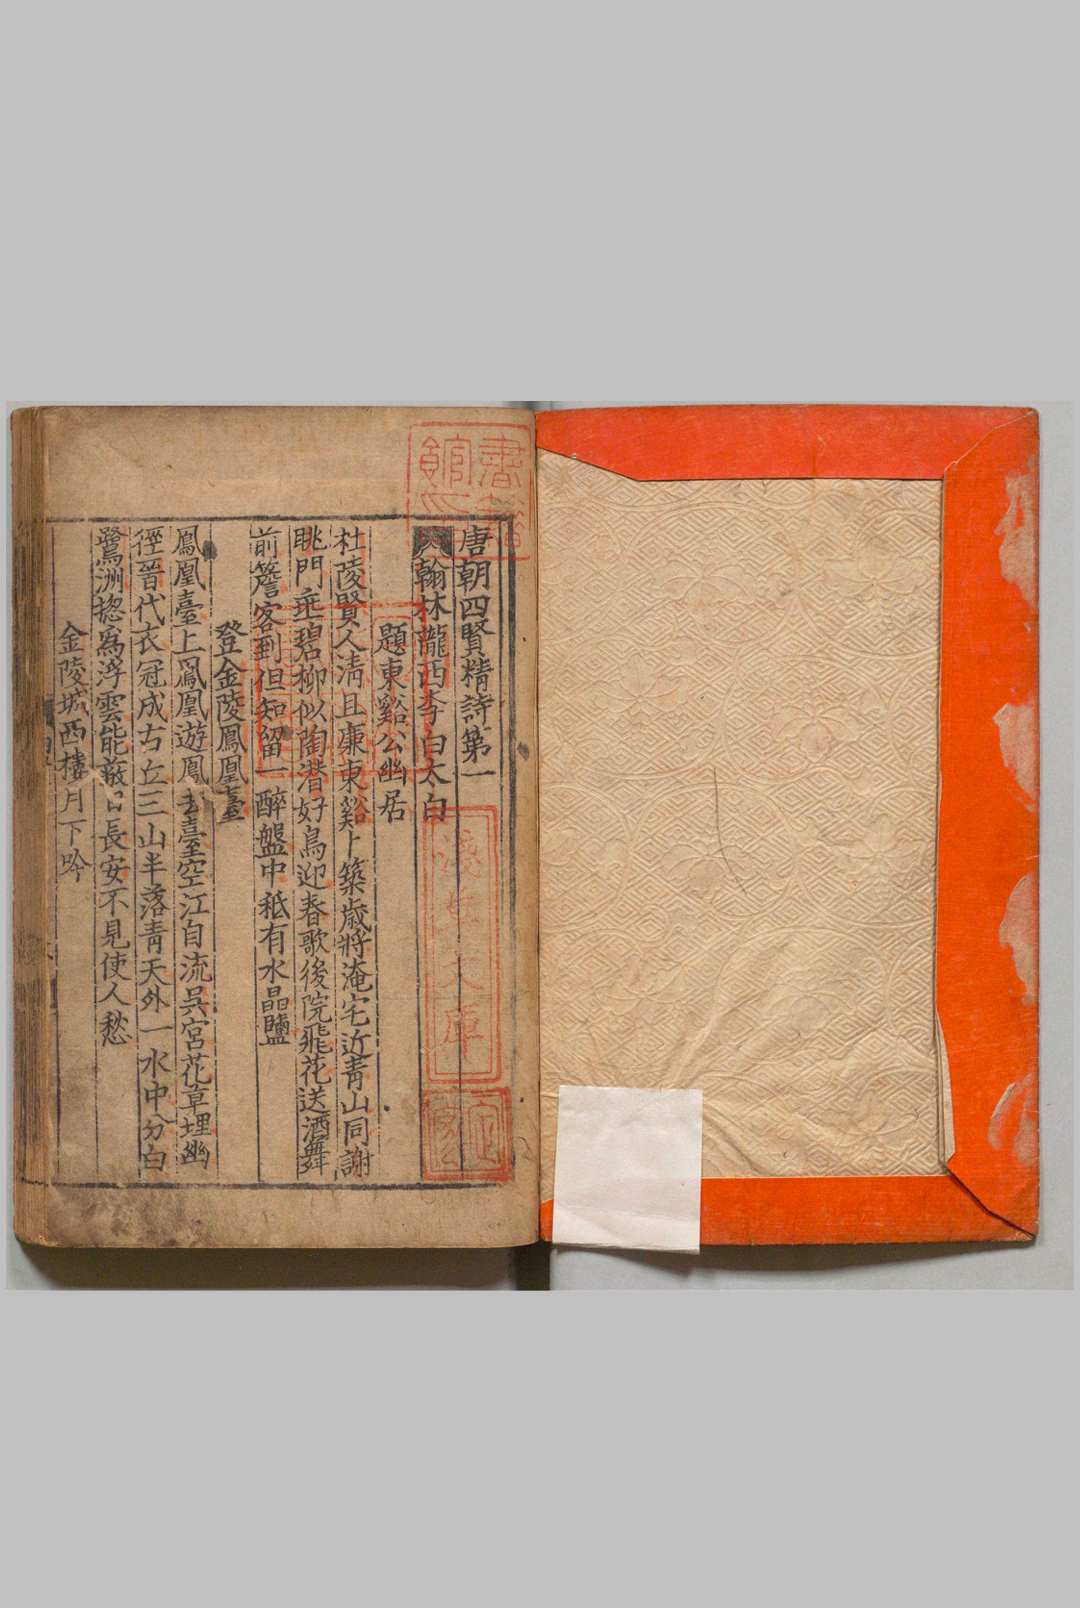 唐朝四賢精詩第一
翰林隴西李白太白
題東谿公幽居
杜陵賢人淸且廉東谿卜築歲將淹宅近青山同謝
眺門垂碧柳似陶潜好鳥迎春歌後院飛花送酒舞
前簷客到但知留一醉盤中秪有水晶鹽
登金陵鳳凰臺
鳳凰臺上鳳凰遊鳳去臺空江自流吳宮花草埋幽
徑晉代衣冠成古丘三山半落靑天外一水中分白
鷺洲揔爲浮雲能蔽日長安不見使人愁
金陵城西樓月下吟
淺草文庫